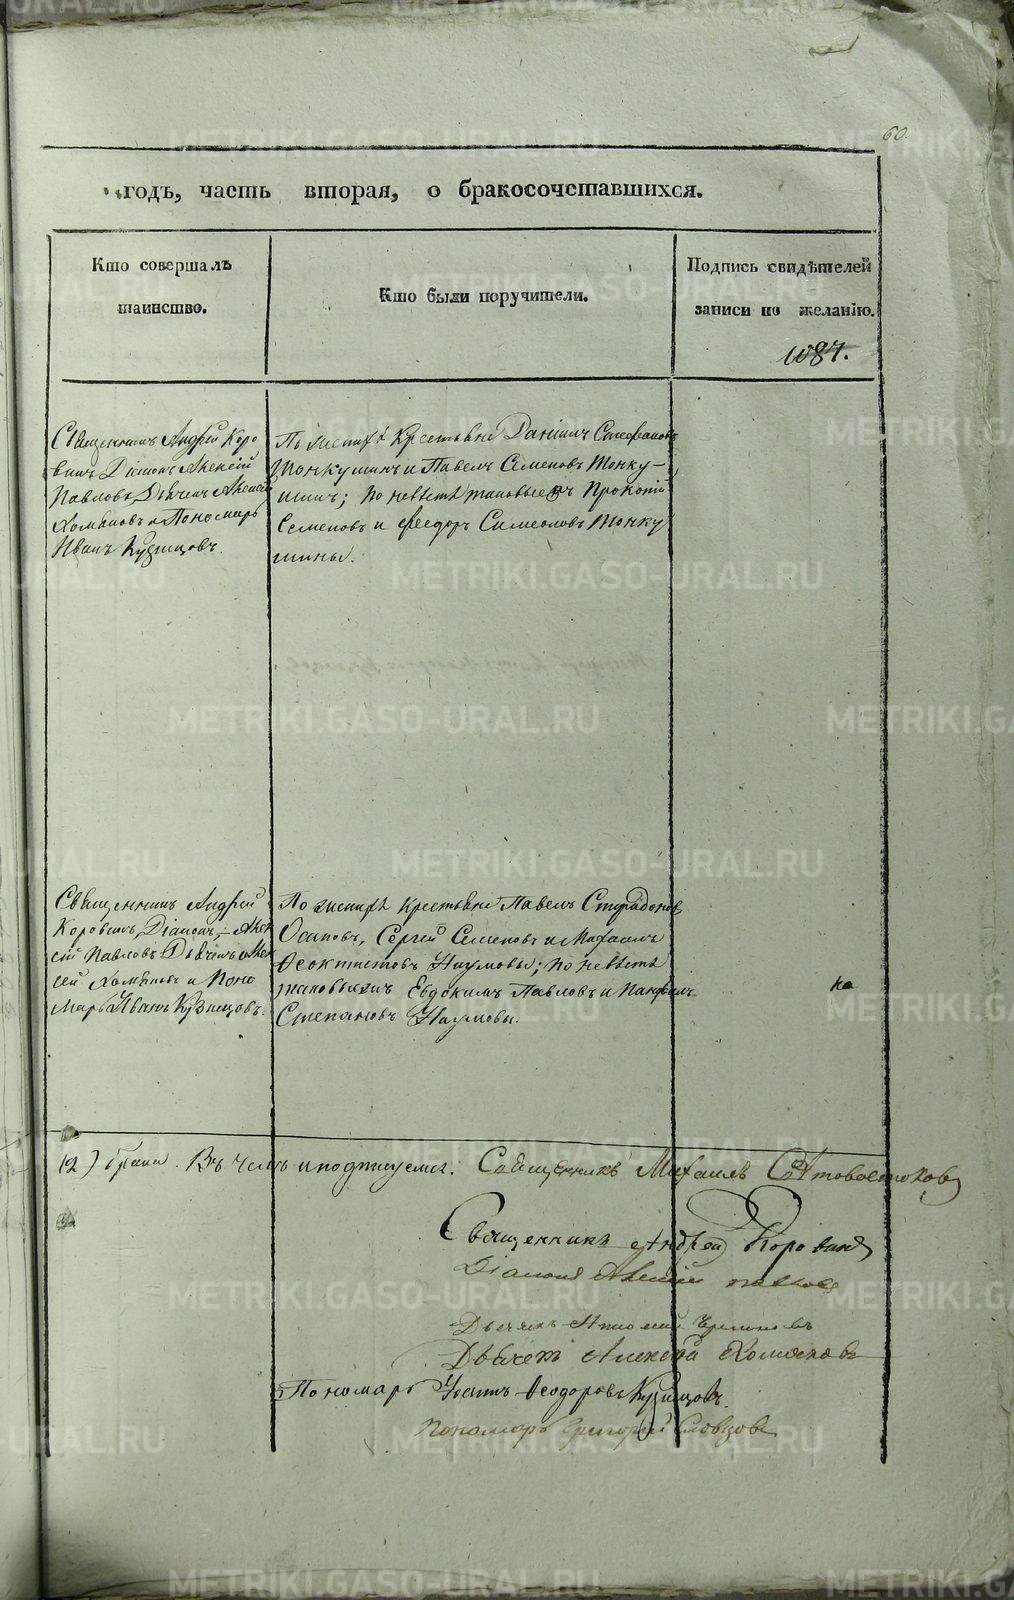 60.
годъ, часть вторая, о бракосочетавшихся.
Кто совершалъ
таинство.
Кто были поручители.
Подпись свидѣтелей
записи по желанію.
1087.
Священникъ Андрей Коро
винъ Діаконъ Алексій
Павловъ, Дьячекъ Алексѣй
Хомяковъ и Пономарь
Иванъ Кузнецовъ.
По женихѣ Крестьяне Даніилъ Стефановъ
Тонкушинъ и Павелъ Семеновъ Тонку-
шинъ; по невѣстѣ таковые Прокопій
Семеновъ и Феодоръ Симеоновъ Тонку
шины.
Священникъ Андрей
Коровинъ, Діаконъ Алек
сій Павловъ Дьячекъ Алек
сей Хомяковъ и Поно
марь Иванъ Кузнецовъ.
По женихѣ Крестьяне Павелъ
Осиповъ, Сергей Семеновъ и Михаилъ
Феоктистовъ Наумовы; по невѣстѣ
таковые Евдокимъ Павловъ и Панфилъ
Степановъ Наумовы.
на
(2) брака. Въ чемъ и подписуемся. Священникъ Михаилъ
Священникъ Андрей Коровинъ
Діаконъ Алексій Павловъ
Дьячекъ
Дьячекъ Алексѣй Хомяковъ
Пономарь Иванъ Феодоровъ Кузнецовъ.
Пономарь Григорей Словцовъ
METRIKI.GASO-URAL.RU